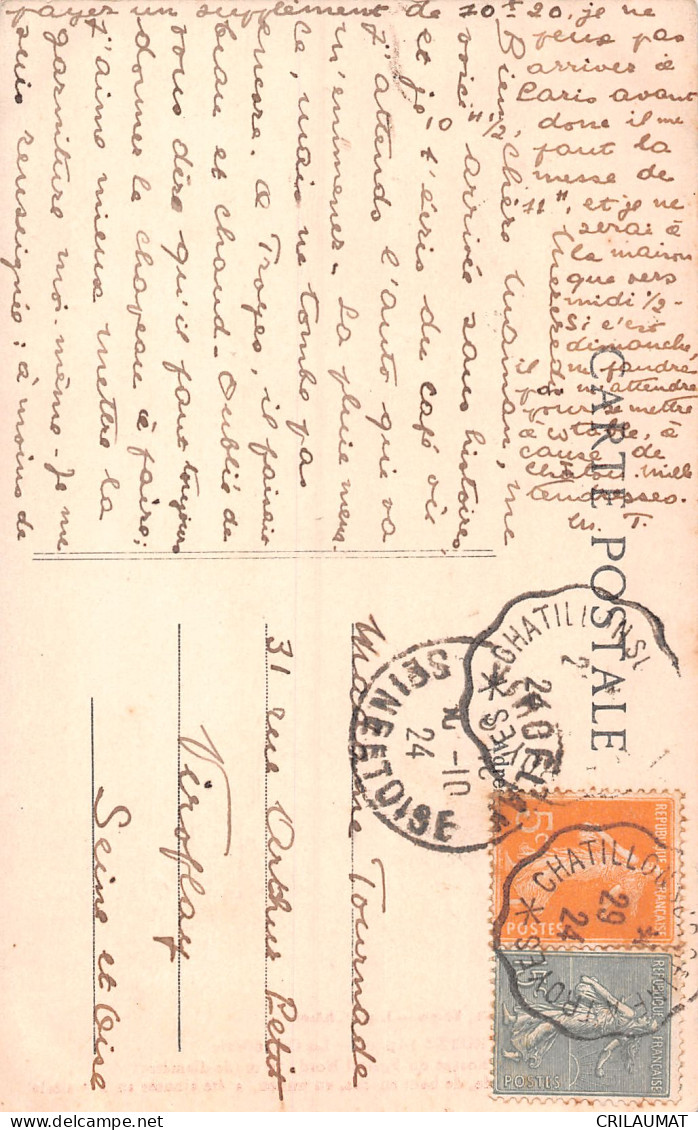 CARTE POSTALE
Mercredi
Bien chère maman, me
voici arrivée sans histoires,
et je t'écris du café où
j'attends l'auto qui va
m'emmener. La pluie mena
ce, mais ne tombe pas
encore. A Troyes, il faisait
beau et chaud. Oublié de
vous dire qu'il faut toujours
donner le chapeau à faire;
j'aime mieux mettre la
garniture moi-même. Je me
suis renseignée: à moins de
payer un supplément de 70 20, je ne
peux pas
arriver à
Paris avant
11 1/2
10
donc il me
faut la
messe de
11 h, et je ne
serai à
la maison
que vers
midi 1/2 -
Si c'est
dimanche,
il ne faudra
pas m'attendre
pour se mettre
à table, à
cause de
Mille
tendresses.
M. T.
Madame Tournade
31 rue Arthur Petit
Viroflay
Seine et Oise
SEINE ET OISE
-10
24
CHATILLON S
24
TROYES
5c
REPUBLIQUE FRANÇAISE
POSTES
CHATILLON S
29
24
TROYES
15
REPUBLIQUE FRANÇAISE
POSTES
CRILAUMAT